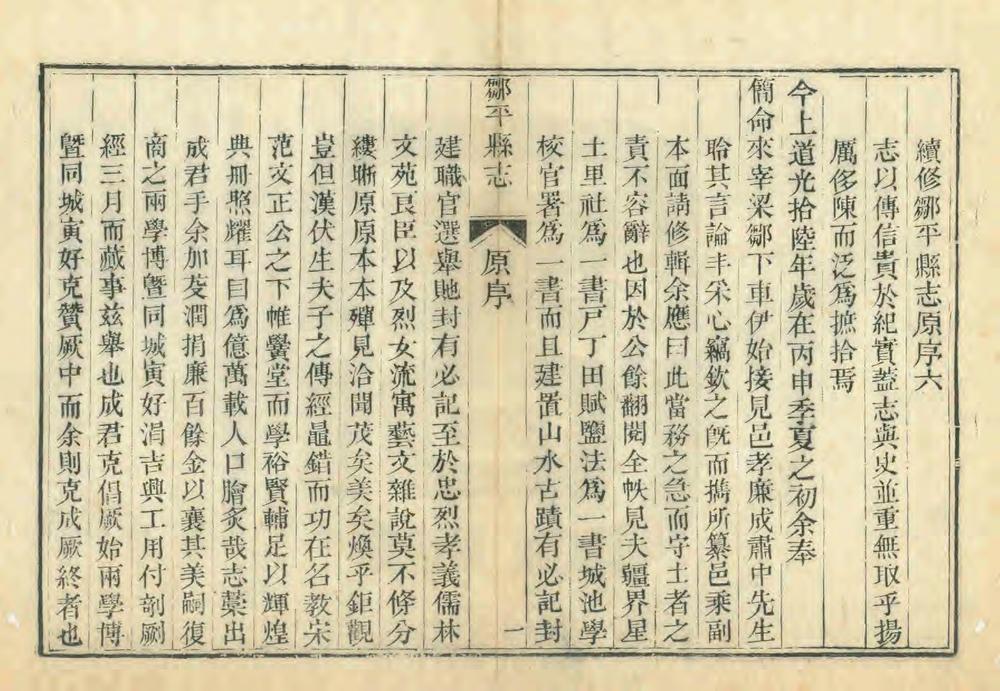 續修鄒平縣志原序六
志以傳信貴於紀實蓋志與史並重無取乎揚
厲侈陳而泛爲摭拾焉
今上道光拾陸年歲在丙申季夏之初余奉
簡命來宰梁鄒下車伊始接見邑孝廉成肅中先生
聆其言論丰采心竊欽之旣而攜所纂邑乘副
本面請修輯余應曰此當務之急而守土者之
責不容辭也因於公餘翻閱全帙見夫疆界星
土里社爲一書戸丁田賦鹽法爲一書城池學
校官署爲一書而且建置山水古蹟有必記封
鄒平縣志
原序
一
建職官選舉貤封有必記至於忠烈孝義儒林
文苑艮臣以及烈女流寓藝文雜說莫不條分
縷晰原原本本殫見洽聞茂矣美矣煥乎鉅觀
豈但漢伏生夫子之傳經鼂錯而功在名教宋
范文正公之下帷黌堂而學裕賢輔足以輝煌
典冊照耀耳目爲億萬載人口膾炙哉志藁出
成君手余加芟潤捐廉百餘金以襄其美嗣復
商之兩學博曁同城寅好涓吉興工用付剞劂
經三月而蕆事兹舉也成君克倡厥始兩學博
曁同城寅好克贊厥中而余則克成厥終者也